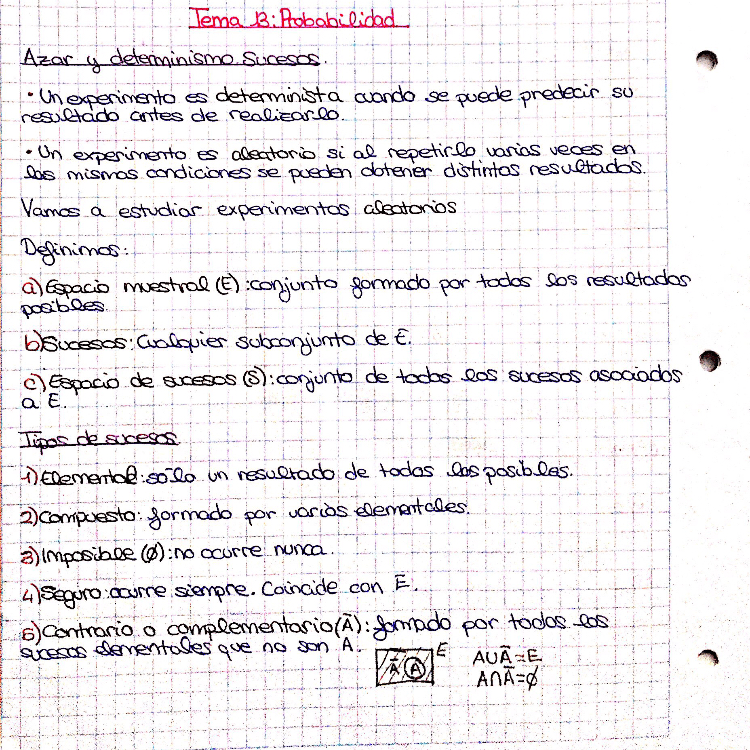 Tema 13: Probabilidad
Azar y determinismo. Sucesos.
• Un experimento es determinista cuando se puede predecir su
resultado antes de realizarlo.
• Un experimento es aleatorio si al repetirlo varias veces en
las mismas condiciones se pueden obtener distintos resultados.
Vamos a estudiar experimentos aleatorios
Definimos:
a) Espacio muestral (E): conjunto formado por todos los resultados
posibles.
b) Sucesos: Cualquier subconjunto de E.
c) Espacio de sucesos (S): conjunto de todos los sucesos asociados
a E.
Tipos de sucesos
1) Elemental: sólo un resultado de todos los posibles.
2) Compuesto: formado por varios elementales.
3) Imposible (∅): no ocurre nunca.
4) Seguro: ocurre siempre. Coincide con E.
5) Contrario o complementario (Ā): formado por todos los
sucesos elementales que no son A.
Ā A E
A∪Ā=E
A∩Ā=∅